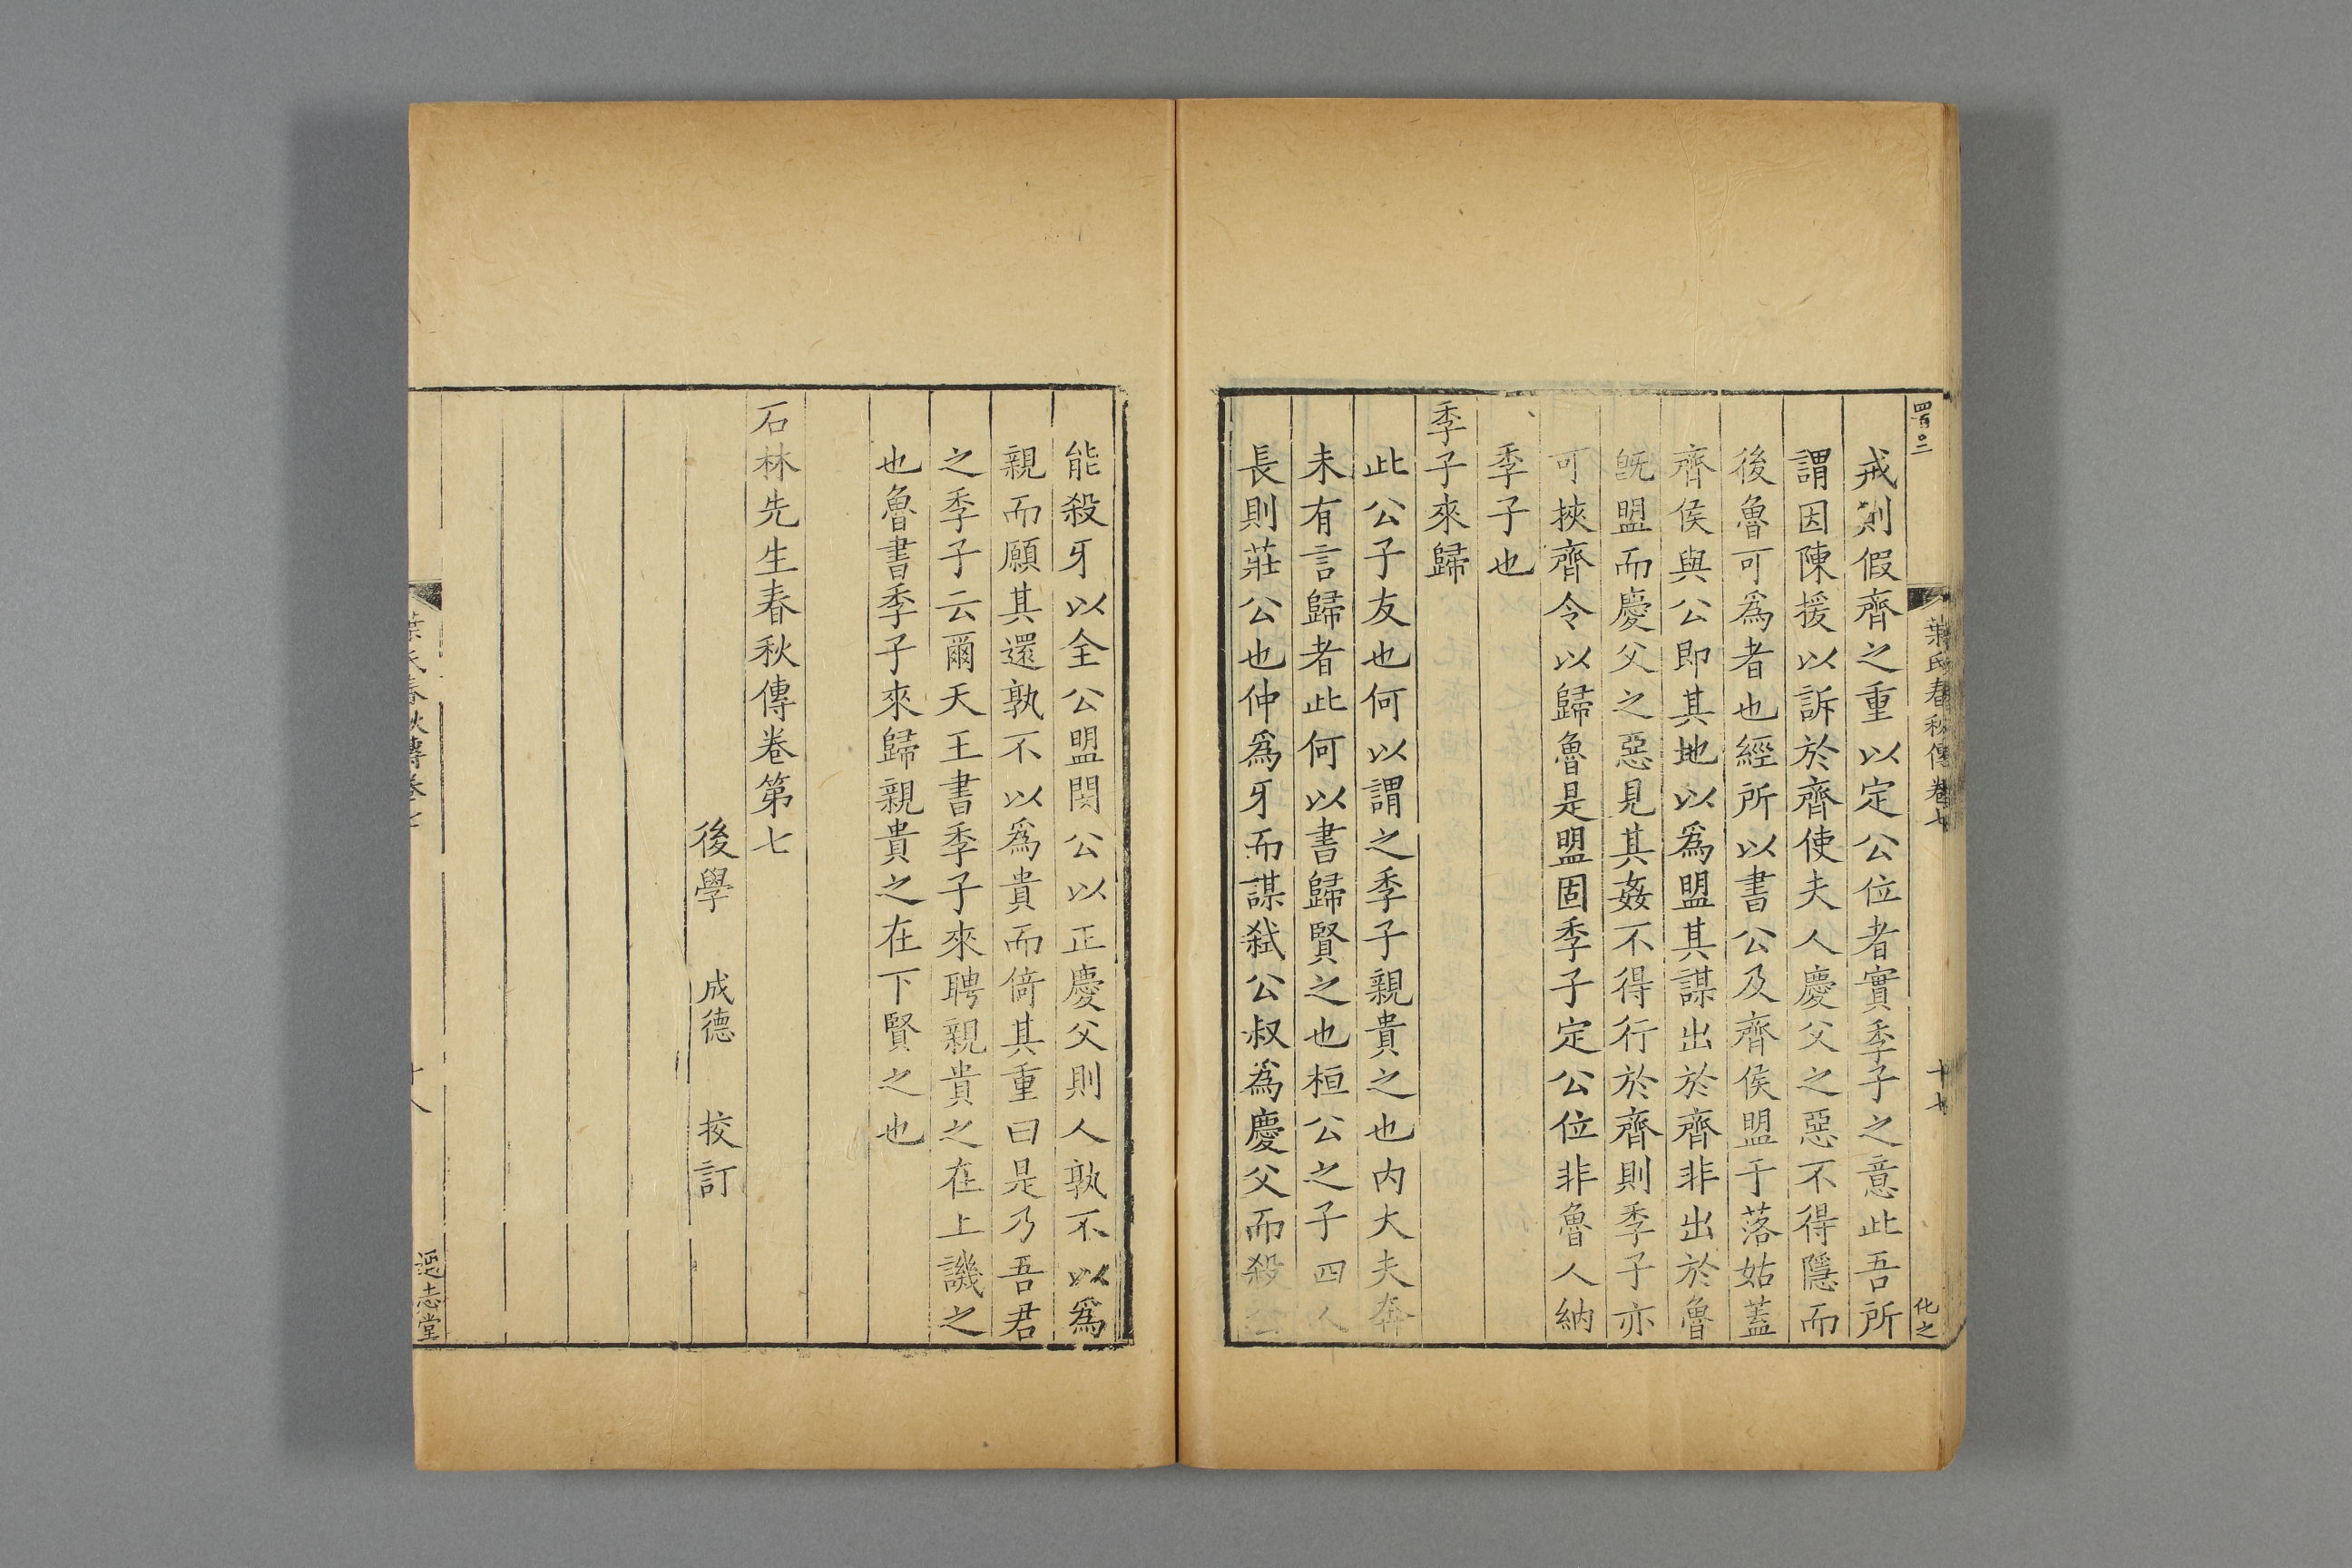 葉氏春秋傳卷七
十七
化之
戒則假齊之重以定公位者實季子之意此吾所
謂因陳援以訴於齊使夫人慶父之惡不得隱而
後魯可爲者也經所以書公及齊侯盟于落姑蓋
齊侯與公即其地以爲盟其謀出於齊非出於魯
旣盟而慶父之惡見其姦不得行於齊則季子亦
可挾齊令以歸魯是盟固季子定公位非魯人納
季子也
季子來歸
此公子友也何以謂之季子親貴之也内大夫奔
未有言歸者此何以書歸賢之也桓公之子四人
長則莊公也仲爲牙而謀弑公叔爲慶父而殺
能殺牙以全公盟閔公以正慶父則人孰不以爲
親而願其還孰不以爲貴而倚其重曰是乃吾君
之季子云爾天王書季子來聘親貴之在上譏之
也魯書季子來歸親貴之在下賢之也
石林先生春秋傳卷第七
後學 成德 挍訂
葉氏春秋傳卷七
十八
通志堂